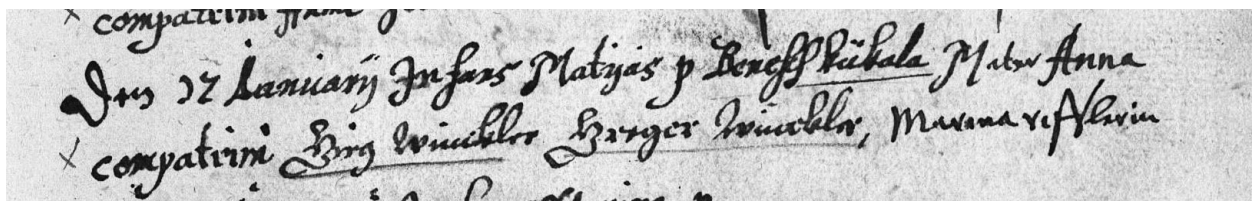 compatrini
Den 17 Januarij Infans Matyas p Benesch kukala Mater Anna
compatrini Girg Winckler Greger Winckler, Marina